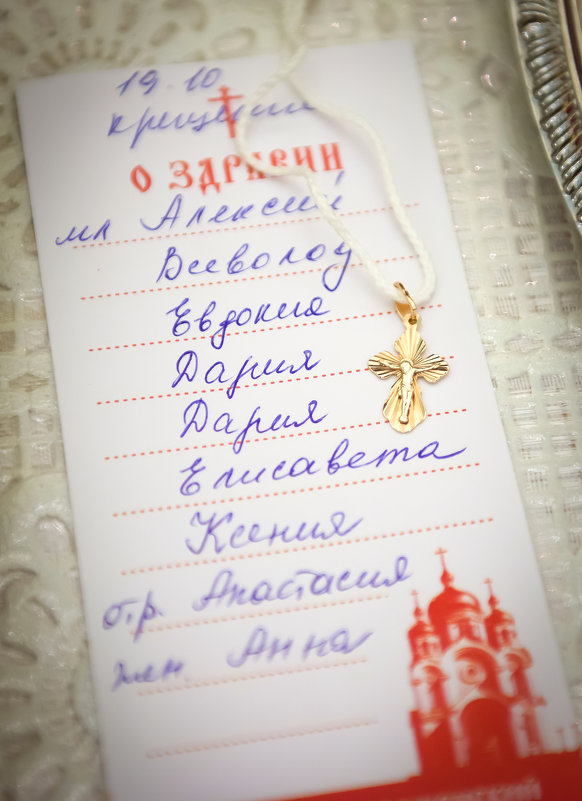 19.10
крещение
О ЗДРАВИИ
мл Алексий
Всеволод
Евдокия
Дария
Дария
Елисавета
Ксения
отр. Анастасия
Анна